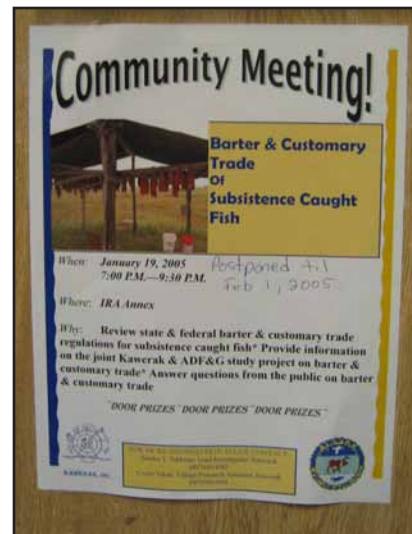 Community Meeting!
Barter & Customary
Trade
Of
Subsistence Caught
Fish
When: January 19, 2005
7:00 P.M.—9:30 P.M.
Postponed til
Feb 1, 2005
Where: IRA Annex
Why: Review state & federal barter & customary trade
regulations for subsistence caught fish* Provide information
on the joint Kawerak & ADF&G study project on barter &
customary trade* Answer questions from the public on barter
& customary trade
"DOOR PRIZES" DOOR PRIZES "DOOR PRIZES"
KAWERAK, INC.